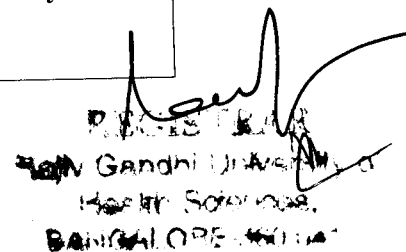 REGISTRAR
Rajiv Gandhi University of
Health Sciences,
BANGALORE